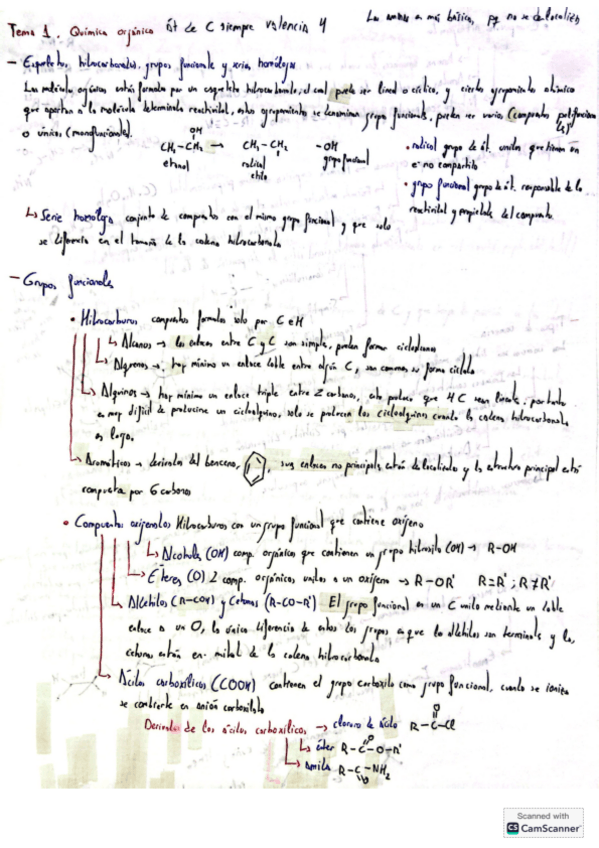 Tema 1. Química orgánica át de C siempre valencia 4
Las aminas más básica, pq no se deslocaliza
- Esqueletos hidrocarbonados, grupos funcionales y series homólogas
Las moléculas orgánicas están formadas por un esqueleto hidrocarbonado, el cual puede ser lineal o cíclico, y ciertos agrupamientos atómicos
que aportan a la molécula determinada reactividad, estos agrupamientos se denominan grupos funcionales, pueden ser varios (compuestos polifuncionales)
o único (monofuncionales).
OH
CH3-CH2 → CH3-CH2 -OH
etanol radical etilo grupo funcional
• radical grupo de át. unidos que tienen un
e- no compartido
• grupo funcional grupo de át. responsable de la
reactividad y propiedades del compuesto
↳ Serie homóloga conjunto de compuestos con el mismo grupo funcional y que solo
se diferencia en el tamaño de la cadena hidrocarbonada
- Grupos funcionales
• Hidrocarburos compuestos formados solo por C e H
↳ Alcanos → los enlaces entre C y C son simples, pueden formar cicloalcanos
↳ Alquenos → hay mínimo un enlace doble entre algún C, son comunes su forma ciclada
↳ Alquinos → hay mínimo un enlace triple entre 2 carbonos, esto produce que 4 C sean lineales, por tanto
es muy difícil de producirse un cicloalquino, solo se producen los cicloalquinos cuando la cadena hidrocarbonada
es larga.
↳ Aromáticos → derivados del benceno, sus enlaces no principales están deslocalizados y la estructura principal está
compuesta por 6 carbonos
• Compuestos oxigenados Hidrocarburos con un grupo funcional que contiene oxígeno
↳ Alcoholes (OH) comp. orgánicos que contienen un grupo hidroxilo (OH) → R-OH
→ Éteres (O) 2 comp. orgánicos unidos a un oxígeno → R-OR' R=R' ; R≠R'
↳ Aldehídos (R-COH) y Cetonas (R-CO-R') El grupo funcional es un C unido mediante un doble
enlace a un O, la única diferencia de estos grupos es que los aldehídos son terminales y las
cetonas están en mitad de la cadena hidrocarbonada
↳ Ácidos carboxílicos (COOH) contienen el grupo carboxilo como grupo funcional, cuando se ioniza
se convierte en anión carboxilato
Derivados de los ácidos carboxílicos → cloruro de ácido R-C-Cl
O
↳ éster R-C-O-R'
O
↳ amida R-C-NH2
O
Scanned with
CS CamScanner